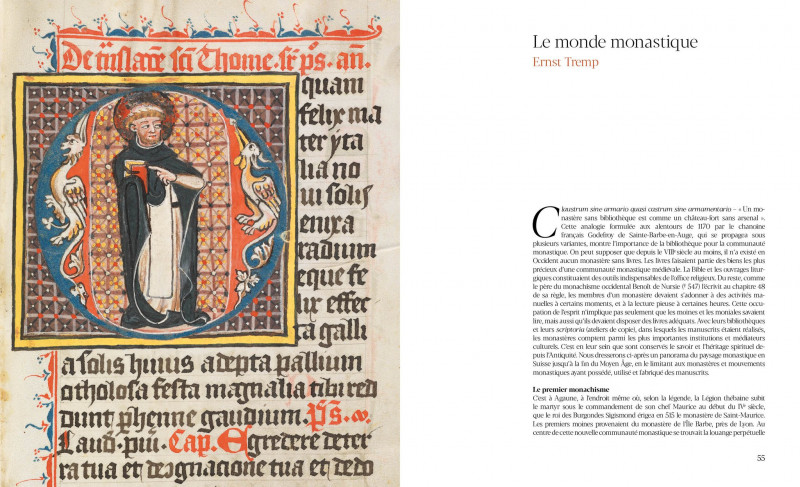 De Thome. an.
quam
felix ma
ter yta
lia no
ui solis
enixa
radium
eque fe
lix effec
ta galli
a solis huius adepta pallium
otholosa festa magnalia tibi red
dunt phenne gaudium. Ps.
Laud. Cap. Egredere de ter
ra tua et de cognacione tua et de do
Le monde monastique
Ernst Tremp
Claustrum sine armario quasi castrum sine armamentario – « Un mo-
nastère sans bibliothèque est comme un château-fort sans arsenal ».
Cette analogie formulée aux alentours de 1170 par le chanoine
français Godefroy de Sainte-Barbe-en-Auge, qui se propagea sous
plusieurs variantes, montre l'importance de la bibliothèque pour la communauté
monastique. On peut supposer que depuis le VIIIe siècle au moins, il n'a existé en
Occident aucun monastère sans livres. Les livres faisaient partie des biens les plus
précieux d'une communauté monastique médiévale. La Bible et les ouvrages litur-
giques constituaient des outils indispensables de l'office religieux. Du reste, comme
le père du monachisme occidental Benoît de Nursie († 547) l'écrivit au chapitre 48
de sa règle, les membres d'un monastère devaient s'adonner à des activités ma-
nuelles à certains moments, et à la lecture pieuse à certaines heures. Cette occu-
pation de l'esprit n'implique pas seulement que les moines et les moniales savaient
lire, mais aussi qu'ils devaient disposer des livres adéquats. Avec leurs bibliothèques
et leurs scriptoria (ateliers de copie), dans lesquels les manuscrits étaient réalisés,
les monastères comptent parmi les plus importantes institutions et médiateurs
culturels. C'est en leur sein que sont conservés le savoir et l'héritage spirituel de-
puis l'Antiquité. Nous dresserons ci-après un panorama du paysage monastique en
Suisse jusqu'à la fin du Moyen Âge, en le limitant aux monastères et mouvements
monastiques ayant possédé, utilisé et fabriqué des manuscrits.
Le premier monachisme
C'est à Agaune, à l'endroit même où, selon la légende, la Légion thébaine subit
le martyr sous le commandement de son chef Maurice au début du IVe siècle,
que le roi des Burgondes Sigismond érigea en 515 le monastère de Saint-Maurice.
Les premiers moines provenaient du monastère de l'Île Barbe, près de Lyon. Au
centre de cette nouvelle communauté monastique se trouvait la louange perpétuelle
55